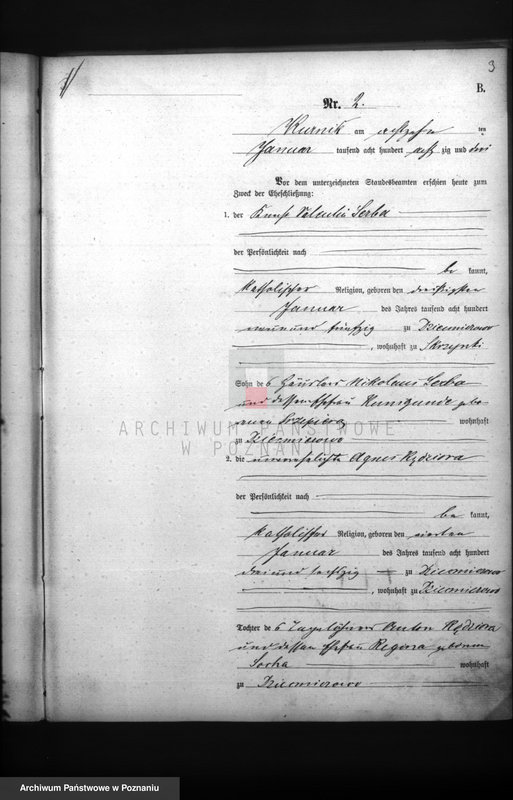 3
B.
Nr. 2.
Kurnik am achtzehn ten
Januar tausend acht hundert acht zig und drei
Vor dem unterzeichneten Standesbeamten erschien heute zum
Zweck der Eheschließung:
1. der Knecht Valentin Serba
der Persönlichkeit nach
be kannt,
katholischer Religion, geboren den dreißigsten
Januar des Jahres tausend acht hundert
neun und fünfzig zu Dziecmierowo
, wohnhaft zu Skrzynki
Sohn des Häuslers Nikolaus Serba
und dessen Ehefrau Kunigunde gebo
renen wohnhaft
zu Dziecmierowo
2. die unverehelichte Agnes Kędziora
der Persönlichkeit nach
be kannt,
katholischer Religion, geboren den vierten
Januar des Jahres tausend acht hundert
drei und sechzig zu Dziecmierowo
, wohnhaft zu Dziecmierowo
Tochter des Tagelöhners Anton Kędziora
und dessen Ehefrau Regina geborenen
Socha wohnhaft
zu Dziecmierowo
ARCHIWUM PAŃSTWOWE
W POZNANIU
Archiwum Państwowe w Poznaniu